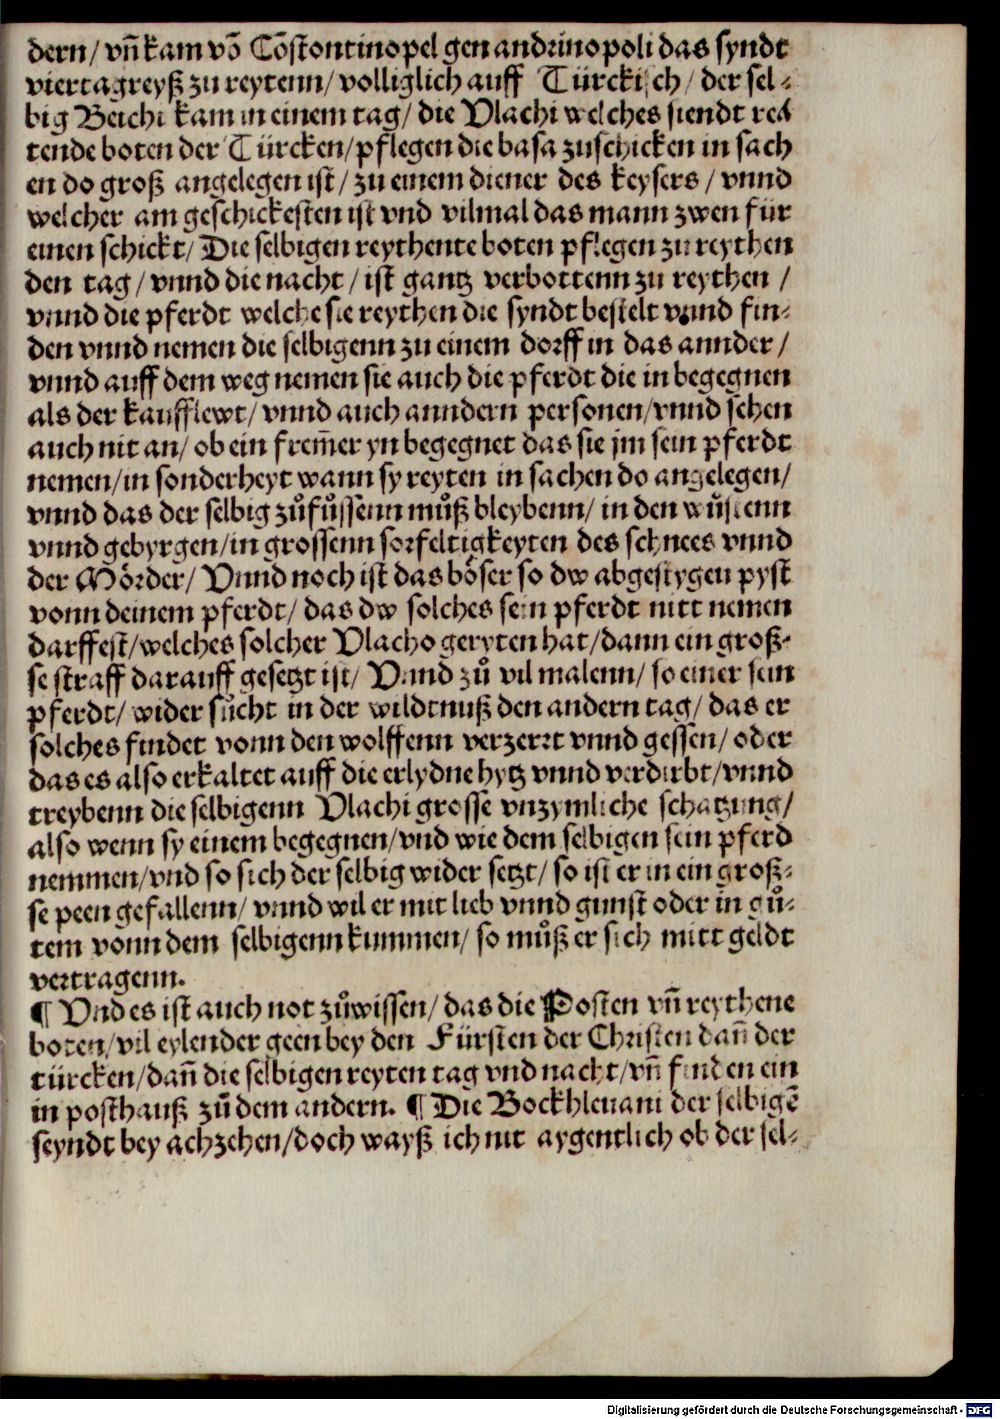 dern/ vñ kam võ Cõstontinopel gen andrinopoli das syndt
viertagreyß zu reytenn/ volliglich auff Türckisch/ der sel⸗
big Beichi kam in einem tag/ die Vlachi welches siendt rei
tende boten der Türcken/ pflegen die basa zuschicken in sach
en do groß angelegen ist/ zu einem diener des keysers/ vnnd
welcher am geschickesten ist vnd vilmal das mann zwen für
einen schickt/ Die selbigen reythente boten pflegen zu reythen
den tag/ vnnd die nacht/ ist gantz verbottenn zu reythen/
vnnd die pferdt welche sie reythen die syndt bestelt vnnd fin⸗
den vnnd nemen die selbigenn zu einem dorff in das annder/
vnnd auff dem weg nemen sie auch die pferdt die in begegnen
als der kaufflewt/ vnnd auch anndern personen/ vnnd sehen
auch nit an/ ob ein frem̃er yn begegnet das sie jm sein pferdt
nemen/ in sonderheyt wann sy reyten in sachen do angelegen/
vnnd das der selbig zůfůssenn můß bleybenn/ in den wůstenn
vnnd gebyrgen/ in grossenn sorfeltigkeyten des schnees vnnd
der Mörder/ Vnnd noch ist das böser so dw abgestygen pyst
vonn deinem pferdt/ das dw solches sein pferdt nitt nemen
darffest/ welches solcher Vlacho geryten hat/ dann ein groß⸗
se straff darauff gesetzt ist/ Vnnd zů vil malenn/ so einer sein
pferdt/ wider sůcht in der wildtnuß den andern tag/ das er
solches findet vonn den wolffenn verzerrt vnnd gessen/ oder
das es also erkaltet auff die erlydne hytz vnnd verdirbt/ vnnd
treybenn die selbigenn Vlachi grosse vnzymliche schatzung/
also wenn sy einem begegnen/ vnd wie dem selbigen sein pferd
nemmen/ vnd so sich der selbig wider setzt/ so ist er in ein groß⸗
se peen gefallenn/ vnnd wil er mit lieb vnnd gunst oder in gů⸗
tem vonn dem selbigenn kummen/ so můß er sich mitt geldt
vertragenn.
¶ Vnd es ist auch not zůwissen/ das die Posten vñ reythene
boten/ vil eylender geen bey den Fürsten der Christen dañ der
türcken/ dañ die selbigen reyten tag vnd nacht/ vñ finden ein
in posthauß zů dem andern. ¶ Die Bockhleuani der selbigẽ
seyndt bey achzehen/ doch wayß ich nit aygentlich ob der sel⸗
Digitalisierung gefördert durch die Deutsche Forschungsgemeinschaft - DFG